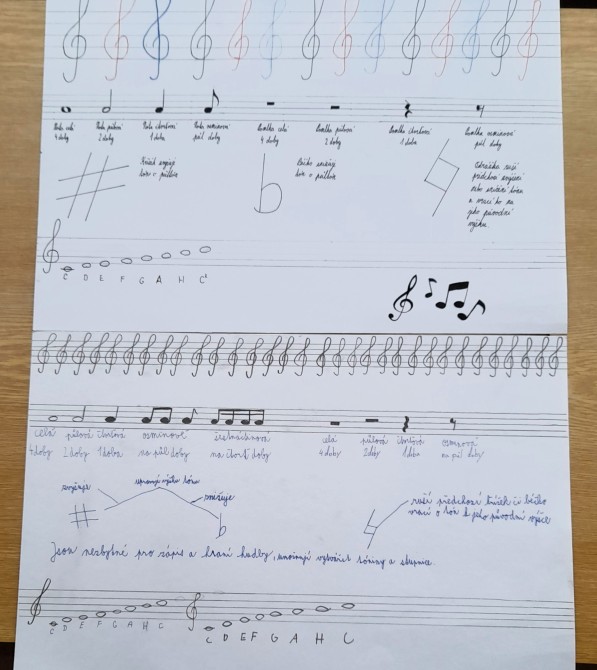 Nota celá
4 doby
Nota půlová
2 doby
Nota čtvrťová
1 doba
Nota osminová
půl doby
Pomlka celá
4 doby
Pomlka půlová
2 doby
Pomlka čtvrťová
1 doba
Pomlka osminová
půl doby
Křížek zvyšuje
tón o půltón
Béčko snižuje
tón o půltón
Odrážka ruší
předchozí zvýšení
nebo snížení tónu
a vrací ho na
jeho původní
výšku.
C D E F G A H C¹
celá
4 doby
půlová
2 doby
čtvrťová
1 doba
osminové
na půl doby
šestnáctinová
na čtvrt doby
celá
4 doby
půlová
2 doby
čtvrťová
1 doba
osminová
na půl doby
zvyšuje
upravují výšku tónu
snižuje
ruší předchozí křížek či béčko
vrací o tón k jeho původní výšce
Jsou nezbytné pro zápis a hraní hudby, umožňují vytvářet tóniny a stupnice.
C D E F G A H C
C D E F G A H C